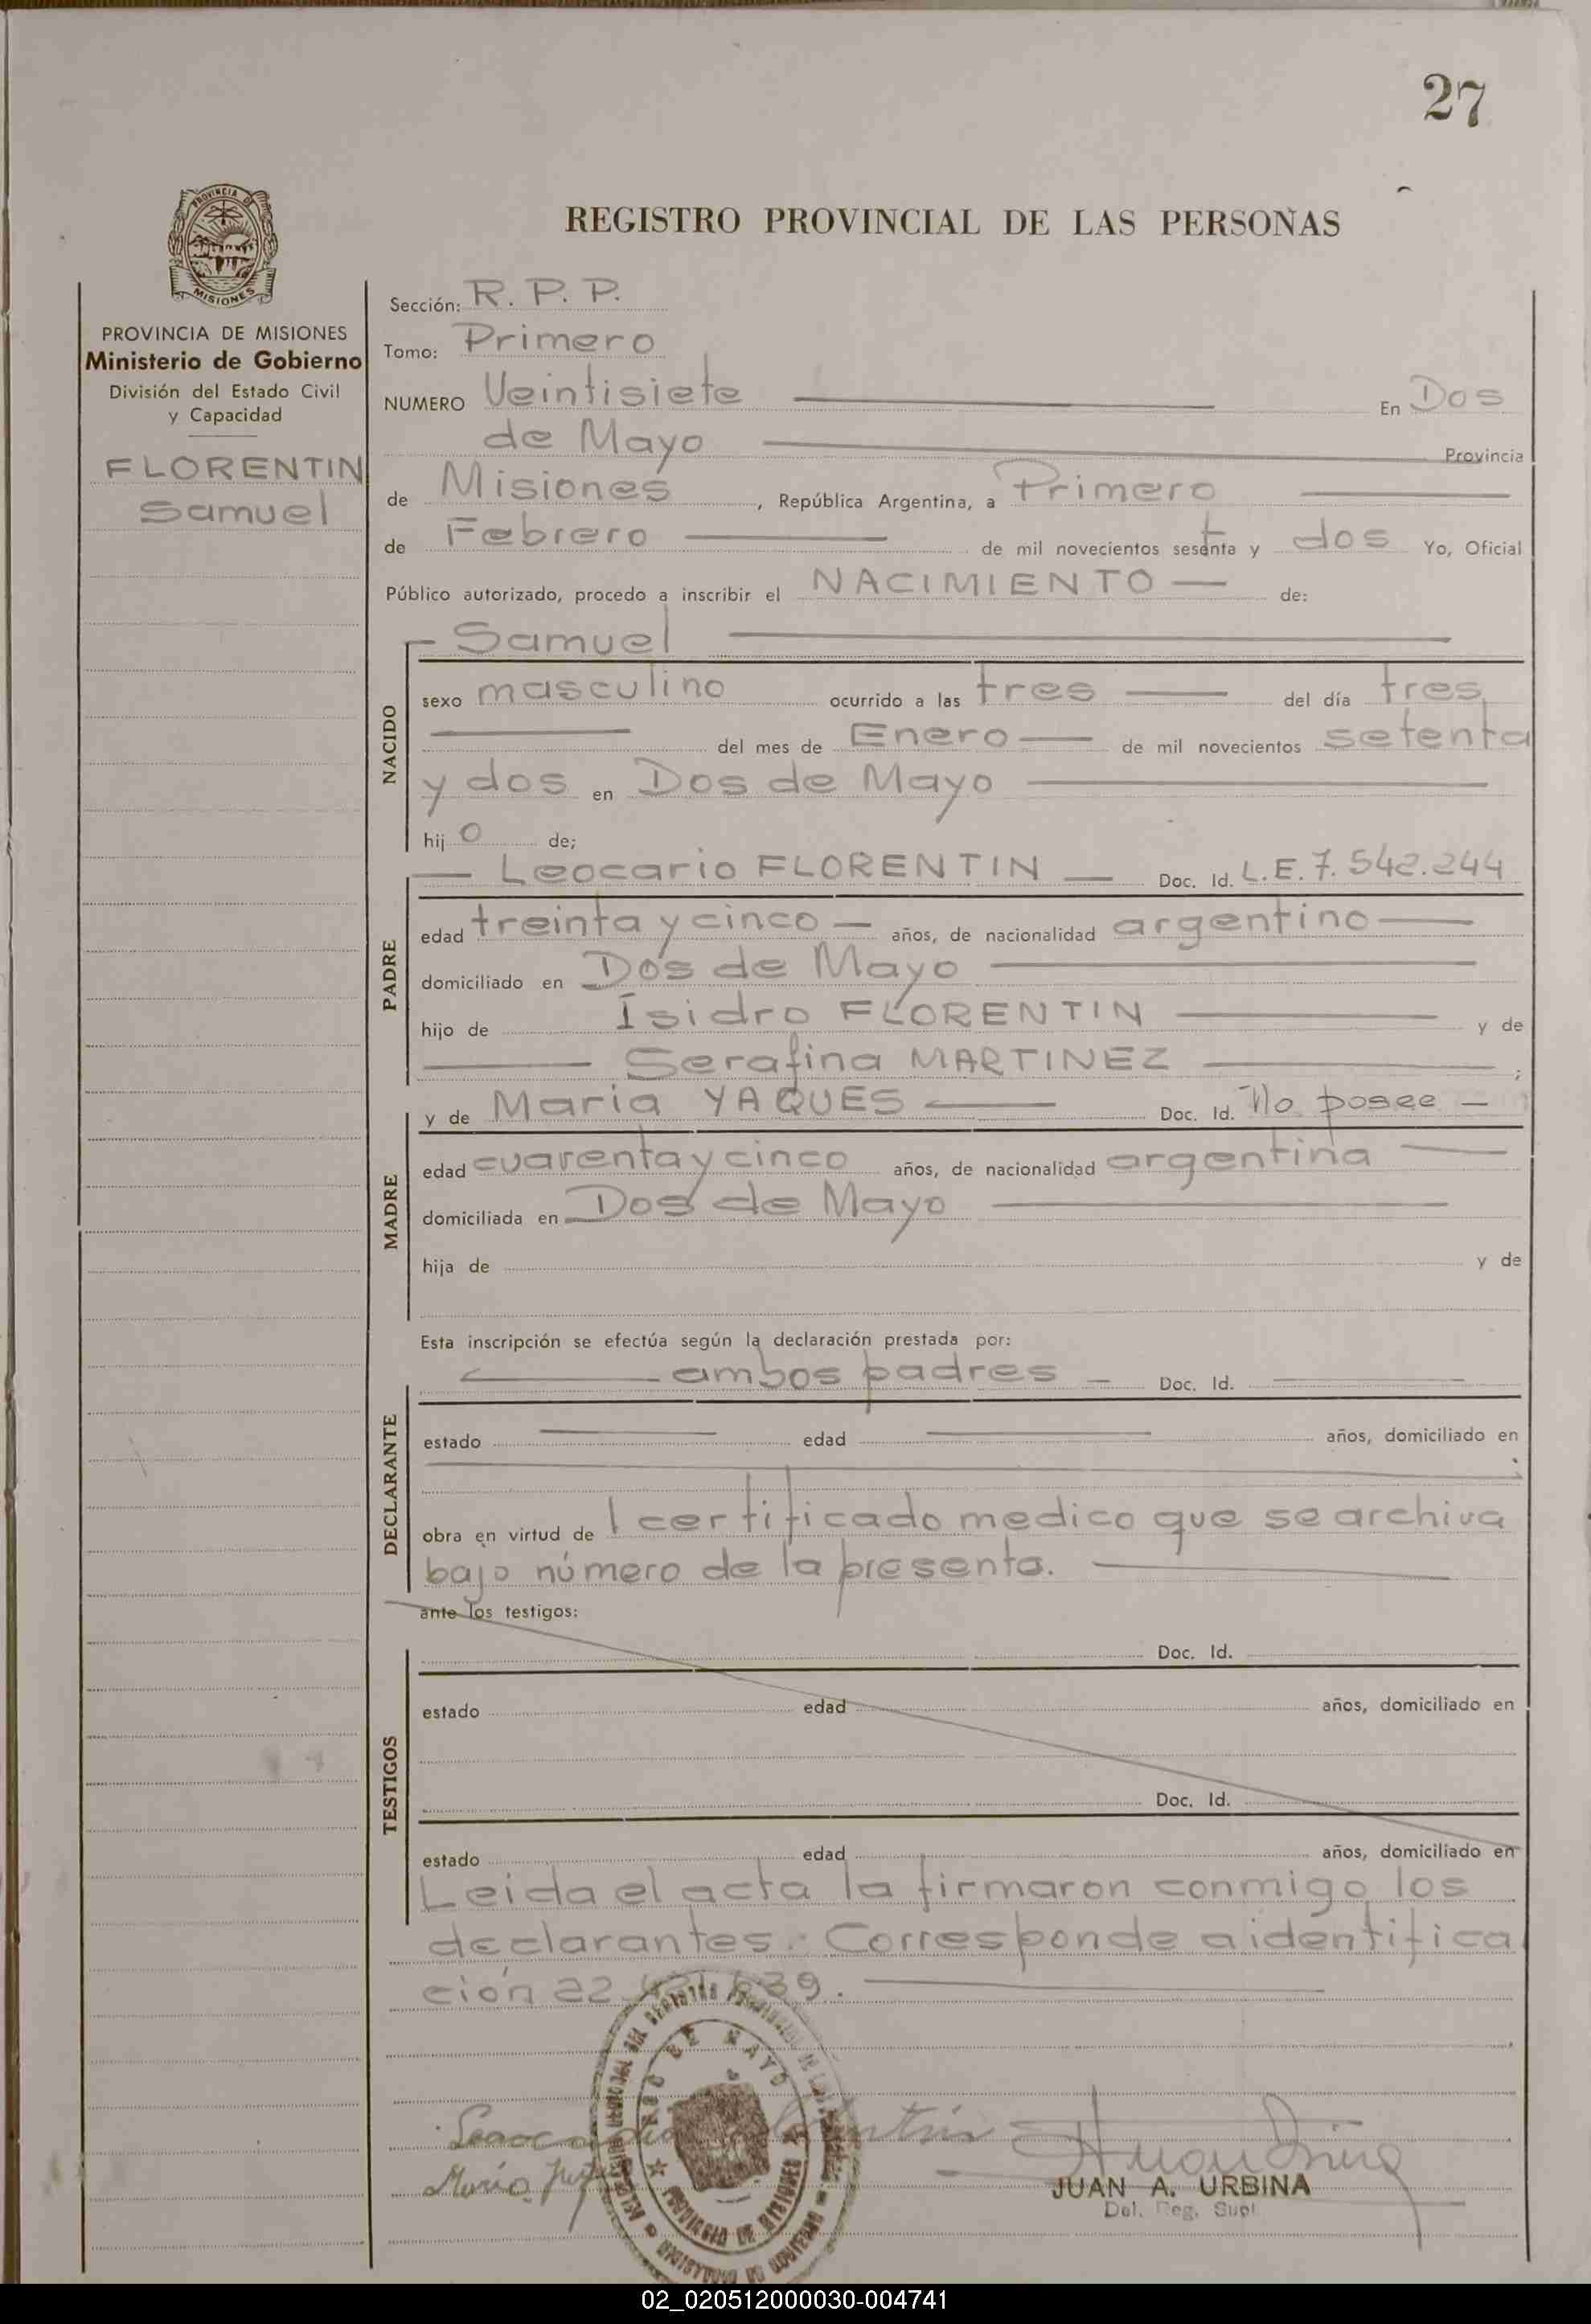 27
REGISTRO PROVINCIAL DE LAS PERSONAS
PROVINCIA DE MISIONES
PROVINCIA DE MISIONES
Ministerio de Gobierno
División del Estado Civil
y Capacidad
FLORENTIN
Samuel
Sección: R. P. P.
Tomo: Primero
NUMERO Veintisiete En Dos
de Mayo Provincia
de Misiones, República Argentina, a Primero
de Febrero de mil novecientos sesenta y dos Yo, Oficial
Público autorizado, procedo a inscribir el NACIMIENTO — de:
NACIDO
Samuel
sexo masculino ocurrido a las tres — del día tres
del mes de Enero — de mil novecientos setenta
y dos en Dos de Mayo
hijo de;
PADRE
Leocario FLORENTIN — Doc. Id. L.E. 7.542.244
edad treinta y cinco — años, de nacionalidad argentino
domiciliado en Dos de Mayo
hijo de Isidro FLORENTIN y de
Serafina MARTINEZ ;
MADRE
y de Maria YAQUES — Doc. Id. No posee —
edad cuarenta y cinco años, de nacionalidad argentina
domiciliada en Dos de Mayo
hija de y de
Esta inscripción se efectúa según la declaración prestada por:
DECLARANTE
ambos padres — Doc. Id.
estado edad años, domiciliado en
;
obra en virtud de 1 certificado medico que se archiva
bajo número de la presente.
ante los testigos:
TESTIGOS
Doc. Id.
estado edad años, domiciliado en
Doc. Id.
estado edad años, domiciliado en
Leida el acta la firmaron conmigo los
declarantes. Corresponde a identifica
ción 22.
DOS DE MAYO
PROVINCIA DE MISIONES
JUAN A. URBINA
Del. Reg. Supl.
02_020512000030-004741